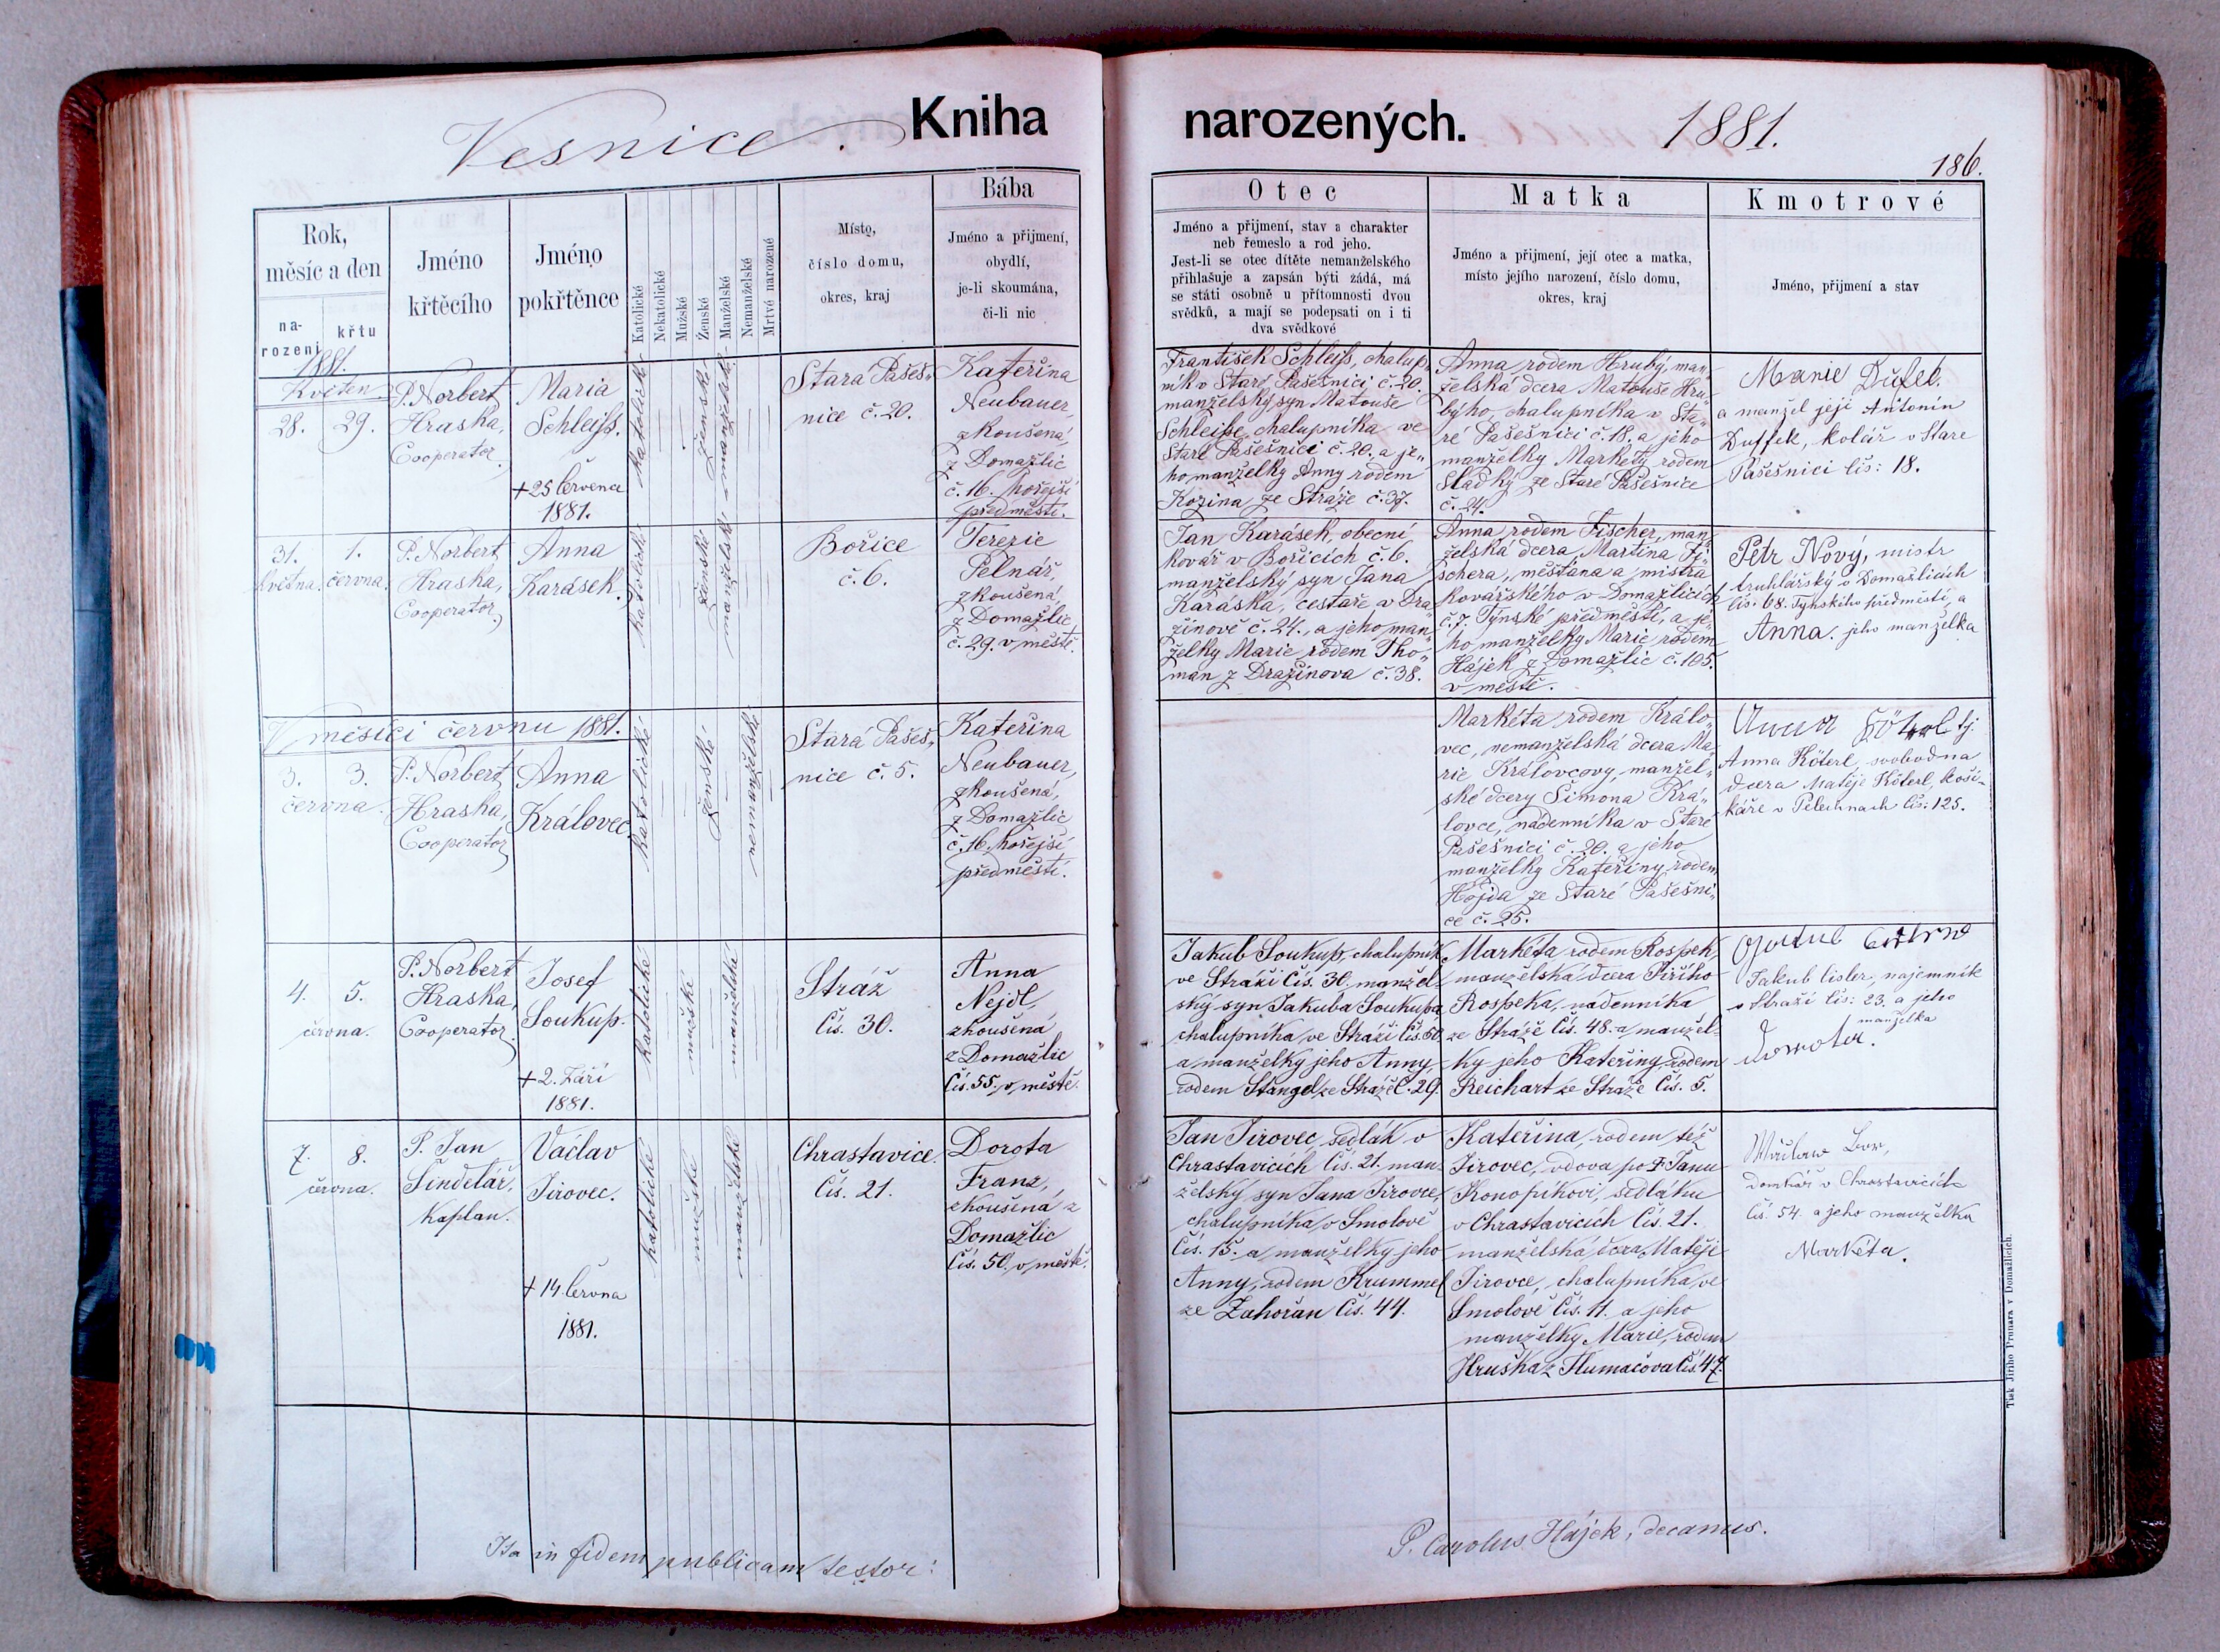 Vesnice. Kniha narozených. 1881.
186.
Rok,
měsíc a den
na-
rození
křtu
Jméno
křtěcího
Jméno
pokřtěnce
Katolické
Nekatolické
Mužské
Ženské
Manželské
Nemanželské
Mrtvé narozené
Místo,
číslo domu,
okres, kraj
Bába
Jméno a přijmení,
obydlí,
je-li skoumána,
či-li nic
Otec
Jméno a přijmení, stav a charakter
neb řemeslo a rod jeho.
Jest-li se otec dítěte nemanželského
přihlašuje a zapsán býti žádá, má
se státi osobně u přítomnosti dvou
svědků, a mají se podepsati on i ti
dva svědkové
Matka
Jméno a přijmení, její otec a matka,
místo jejího narození, číslo domu,
okres, kraj
Kmotrové
Jméno, přijmení a stav
1881.
Květen
28. 29.
P. Norbert
Hraska,
Cooperator.
Maria
Schleiß.
+ 25 července
1881.
katolické
ženské
manželské
Stará Pašeš„
nice č. 20.
Kateřina
Neubauer,
zkoušená,
z Domažlic
č. 16. hořejší
předměstí.
František Schleiß, chalup„
ník v Staré Pašešnici č. 20.
manželský syn Matouše
Schleiße, chalupníka ve
Staré Pašešnici č. 20. a je„
ho manželky Anny rodem
Kozina ze Stráže č. 37.
Anna rodem Hrubý, man„
želská dcera Matouše Hru„
býho, chalupníka v Sta„
ré Pašešnici č. 18. a jeho
manželky Markéty rodem
Sladký ze Staré Pašešnice
č. 24.
Marie Dufek.
a manžel její Antonín
Duffek, kolář v Stare
Pašešnici čís: 18.
31. 1.
května. června.
P. Norbert
Hraska,
Cooperator.
Anna
Karásek.
katolické
ženské
manželské
Bořice
č. 6.
Terezie
Pelnář,
zkoušená
z Domažlic
č. 29. v městě.
Jan Karásek, obecní
kovář v Bořicích č. 6.
manželský syn Jana
Karáska, cestaře v Dra„
žinově č. 24., a jeho man„
želky Marie rodem Tho„
man z Dražinova č. 38.
Anna rodem Fischer, man„
želská dcera Martina Fi„
schera, měšťana a mistra
kovářského v Domažlicích
č. 7. Týnské předměstí, a je„
ho manželky Marie rodem
Hájek z Domažlic č. 105.
v městě.
Petr Nový, mistr
truhlářský v Domažlicích
čís: 68. Týnského předměstí, a
Anna. jeho manželka
V měsíci červnu 1881.
3. 3.
června.
P. Norbert
Hraska,
Cooperator
Anna
Královec.
katolické
ženské
nemanželské
Stará Pašeš„
nice č. 5.
Kateřina
Neubauer,
zkoušená,
z Domažlic
č. 16. hořejší
předměstí.
Markéta rodem Králo„
vec, nemanželská dcera Ma„
rie Královcovy, manžel„
ské dcery Šimona Krá„
lovce, nádenníka v Staré
Pašešnici č. 20. a jeho
manželky Kateřiny rodem
Hojda ze Staré Pašešni„
ce č. 25.
Anna Köterl tj.
Anna Köterl, svobodna
dcera Matěje Köterl, koši-
káře v Pelechnach čís: 125.
4. 5.
června.
P. Norbert
Hraska,
Cooperator.
Josef
Soukup.
+ 2. Září
1881.
katolické
mužské
manželské
Stráž
Čís. 30.
Anna
Nejdl,
zkoušená
z Domažlic
Čís. 55. v městě.
Jakub Soukup, chalupník
ve Stráži Čís. 30. manžel-
ský syn Jakuba Soukupa
chalupníka ve Stráži Čís. 30.
a manželky jeho Anny,
rodem Stangel ze Stráže Č. 29.
Markéta rodem Rospek,
manželská dcera Jiřího
Rospeka, nadenníka
ze Stráže Čís. 48. a manžel-
ky jeho Kateřiny, rodem
Reichart ze Stráže Čís. 5.
Jakub Cisler, najemník
v Straži čís: 23. a jeho
manželka
Dorota.
7. 8.
června.
P. Jan
Šindelář,
Kaplan.
Václav
Jirovec.
+ 14. června
1881.
katolické
mužské
manželské
Chrastavice.
Čís. 21.
Dorota
Franz,
zkoušená z
Domažlic
Čís. 50. v městě.
Jan Jirovec, sedlák v
Chrastavicích Čís. 21. man-
želský syn Jana Jirovce,
chalupníka v Smolově
Čís. 15. a manželky jeho
Anny, rodem Krummel
ze Zahořan Čís. 44.
Kateřina, rodem též
Jirovec, vdova po F Janu
Konopíkovi, sedláku
v Chrastavicích Čís. 21.
manželská dcera Matěji
Jirovce, chalupníka ve
Smolově Čís. 11. a jeho
manželky Marie, rodem
Hruška z Tlumačova Čís. 47.
domkář v Chrastavicích
čís. 54. a jeho manželka
Markéta.
Ita in fidem publicam testor:
P. Carolus Hájek, decanus.
Tisk Jiřího Prunara v Domažlicích.